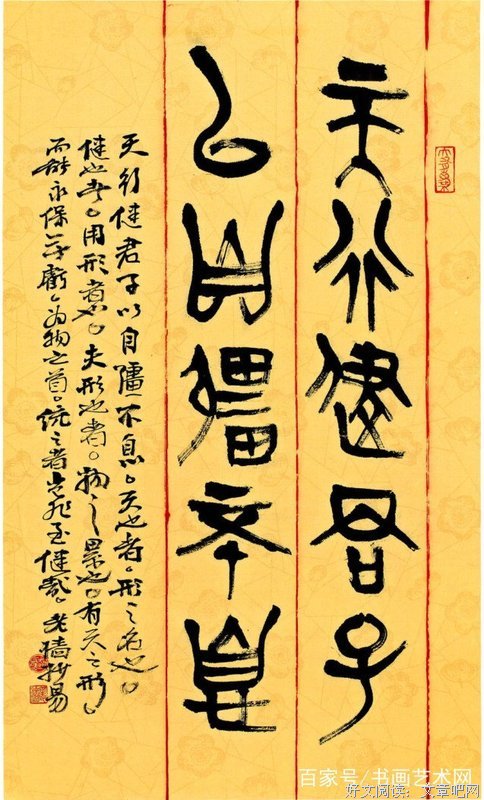 天行健君子
以自彊不息
天行健君子以自彊不息。天也者。形之名也。
健也者。用形者也。夫形也者。物之累也。有天之形。
而能永保无虧。为物之首。统之者岂非至健哉。老墙抄易
百家号/书画艺术网
好文阅读：文章吧网